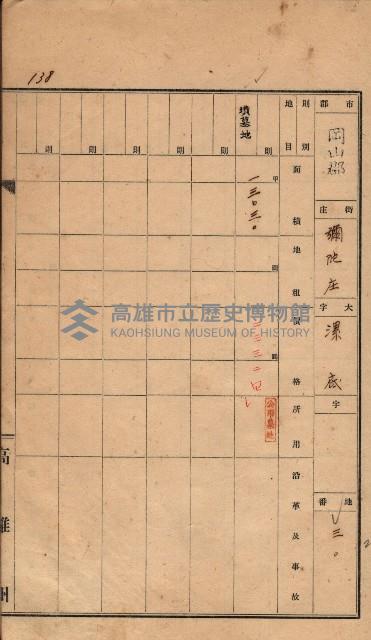 138
市郡
岡山郡
街庄
彌陀庄
大字
漯底
字
地番
三〇
地目
則別
面積
地租
價格
所用沿革及事故
墳墓地
則
甲
一三〇三〇
圓
公用墓地
則
則
則
則
則
高雄州
高雄市立歷史博物館
KAOHSIUNG MUSEUM OF HISTORY